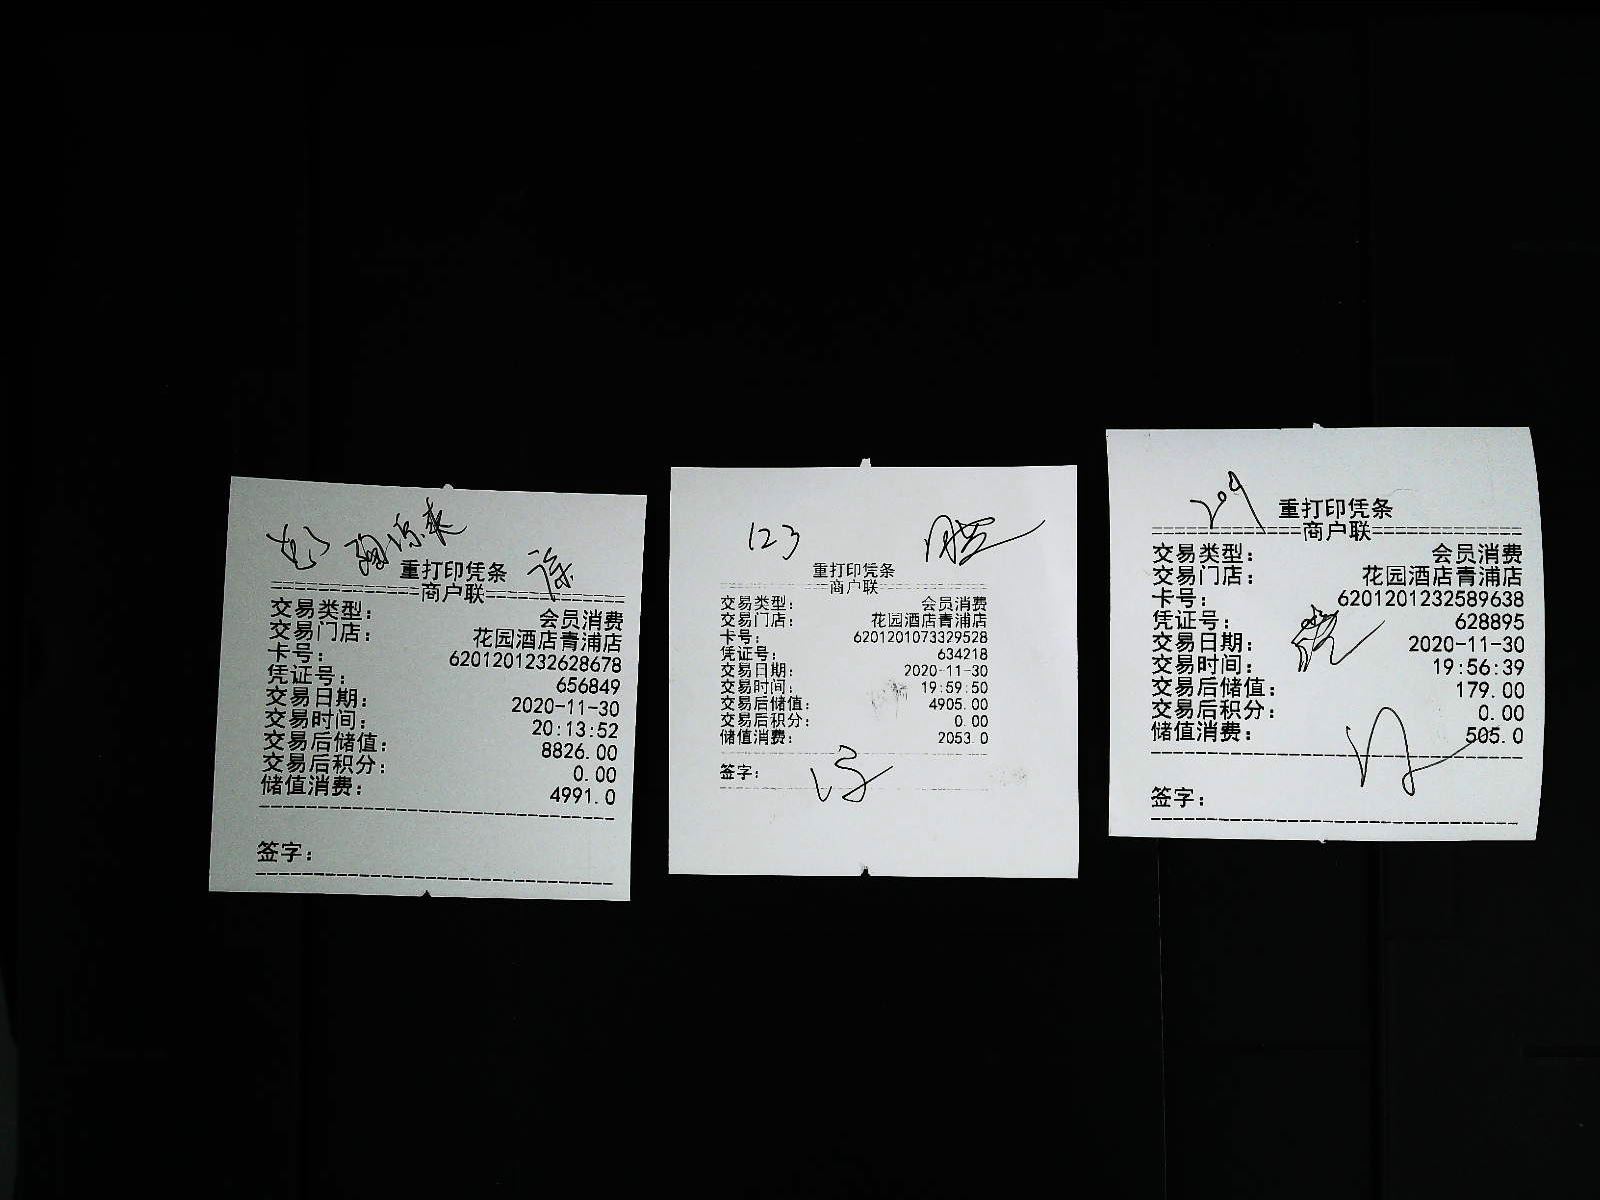 重打印凭条
商户联
交易类型： 会员消费
交易门店： 花园酒店青浦店
卡号： 6201201232628678
凭证号： 656849
交易日期： 2020-11-30
交易时间： 20:13:52
交易后储值： 8826.00
交易后积分： 0.00
储值消费： 4991.0
签字：
123
重打印凭条
商户联
交易类型： 会员消费
交易门店： 花园酒店青浦店
卡号： 6201201073329528
凭证号： 634218
交易日期： 2020-11-30
交易时间： 19:59:50
交易后储值： 4905.00
交易后积分： 0.00
储值消费： 2053.0
签字：
209
重打印凭条
商户联
交易类型： 会员消费
交易门店： 花园酒店青浦店
卡号： 6201201232589638
凭证号： 628895
交易日期： 2020-11-30
交易时间： 19:56:39
交易后储值： 179.00
交易后积分： 0.00
储值消费： 505.0
签字：